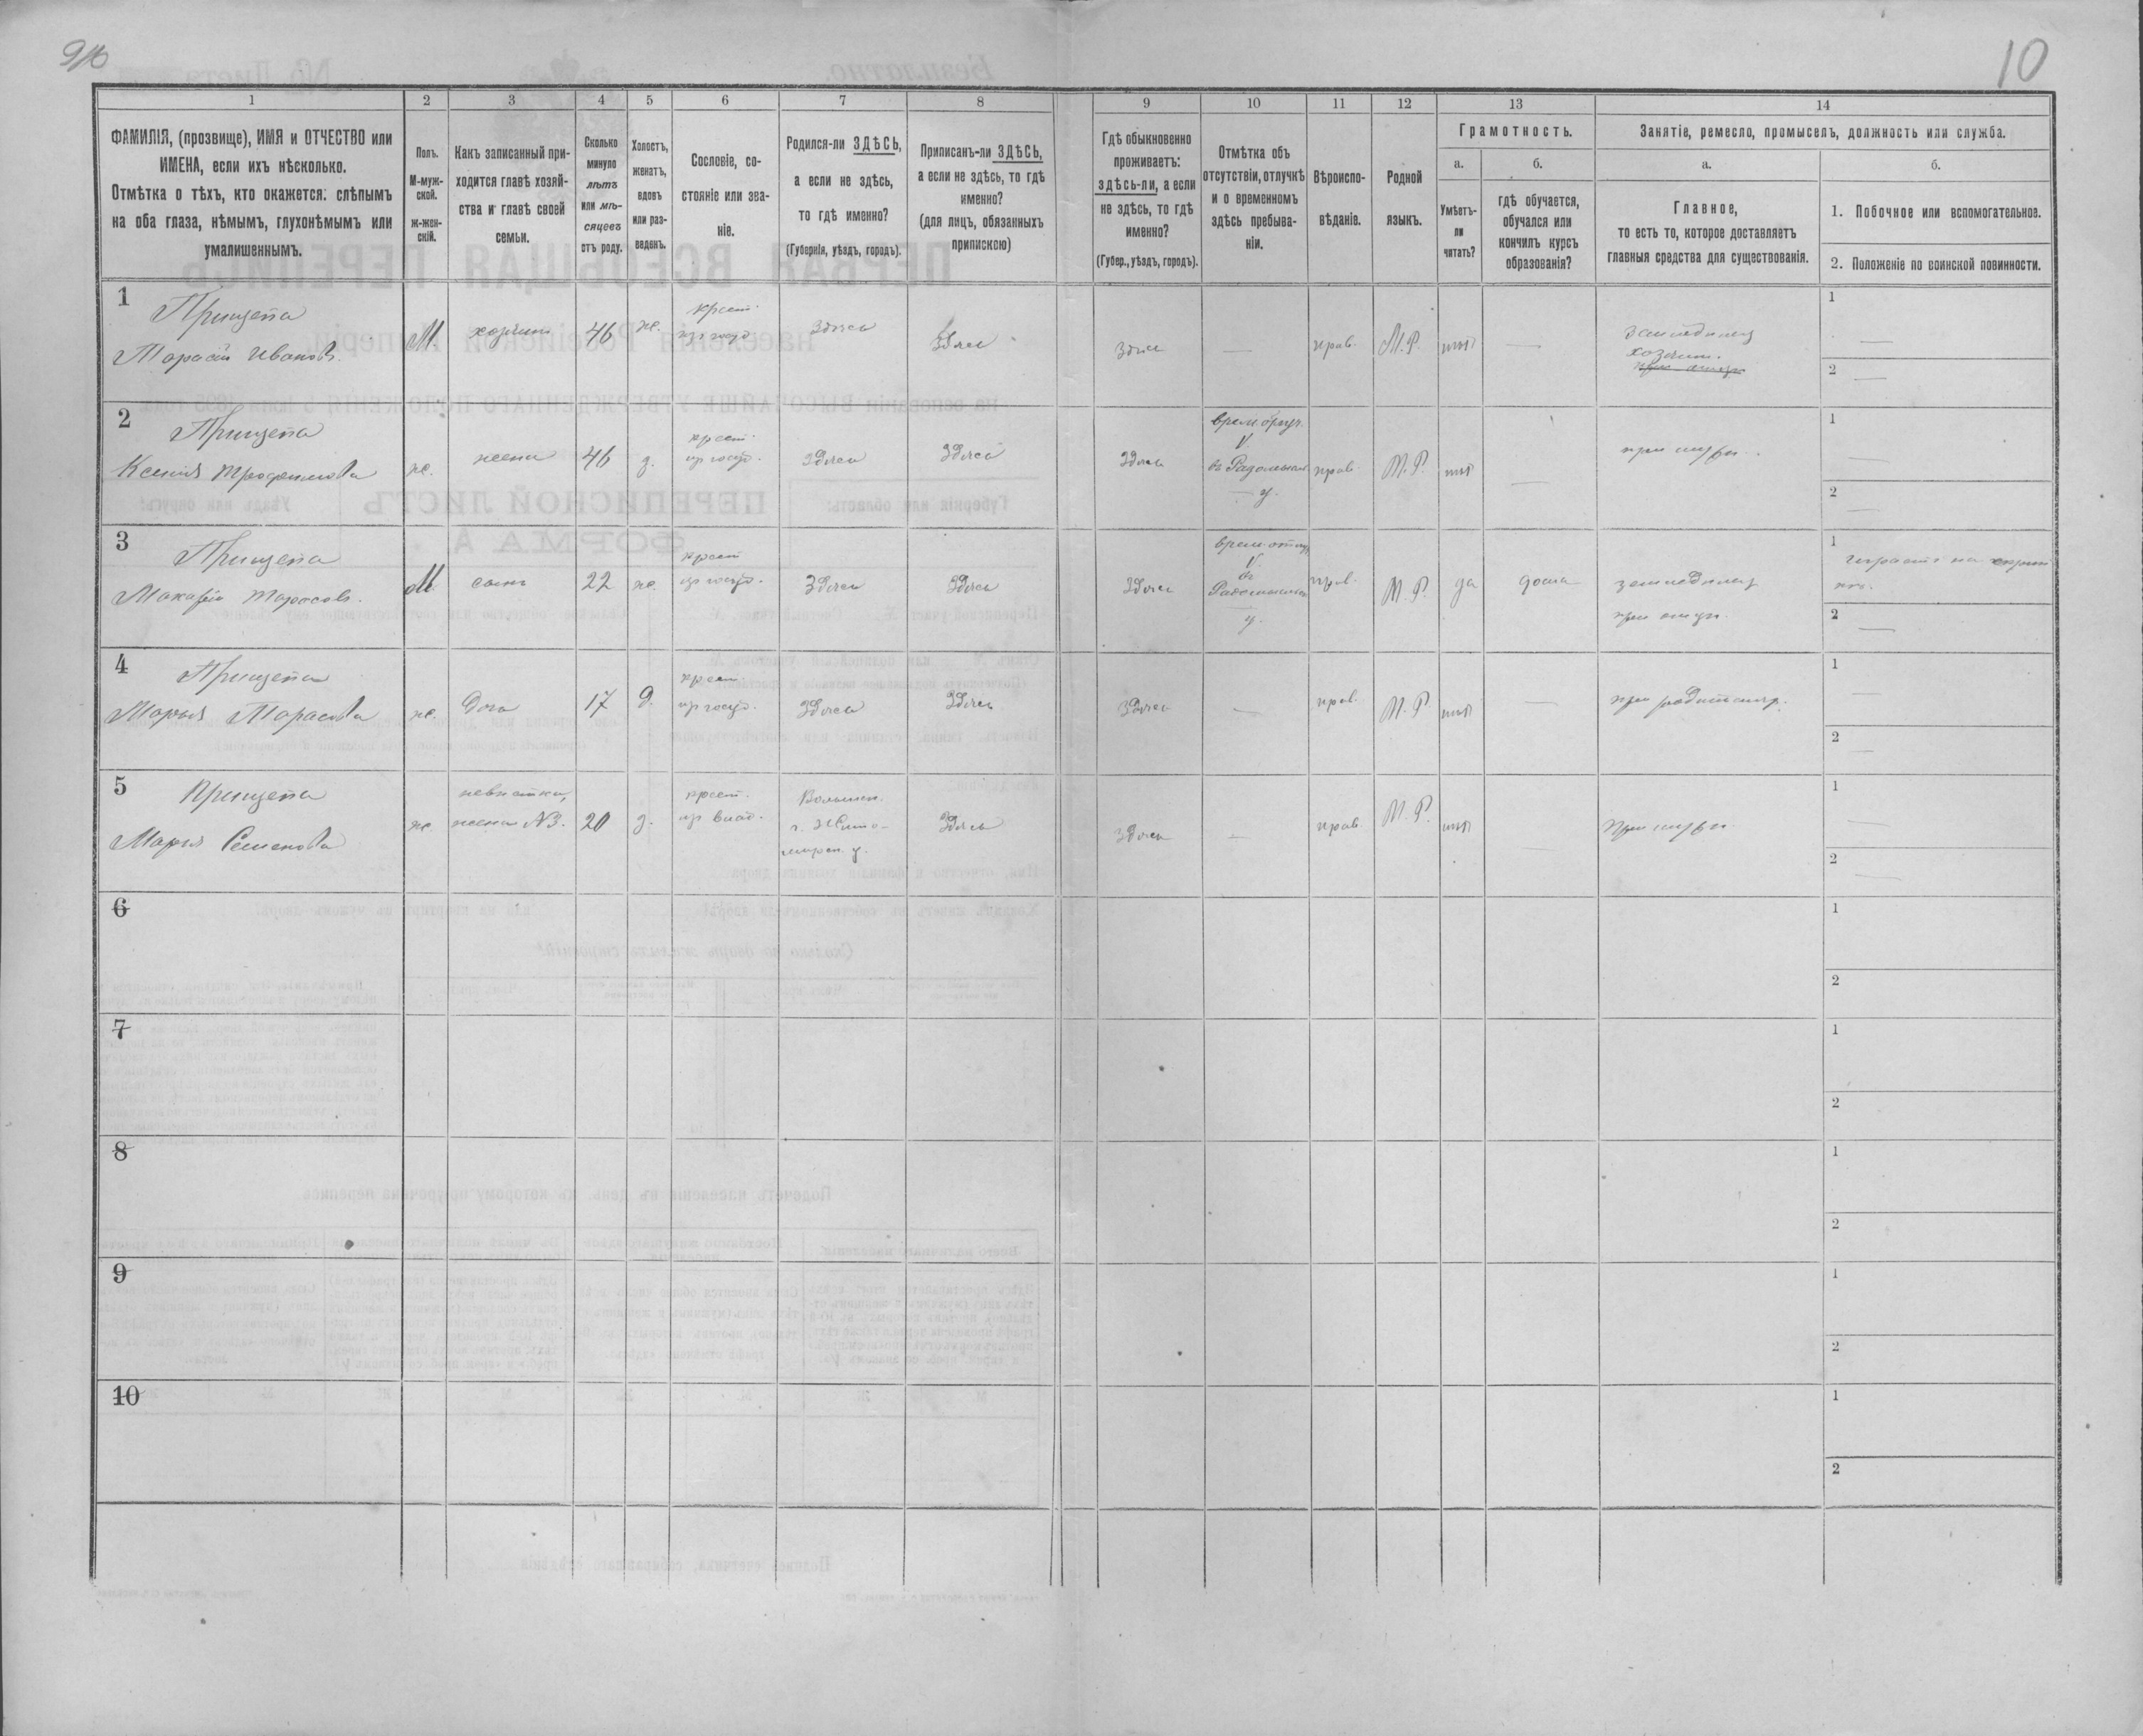 9/10
10
1
2
3
4
5
6
7
8
9
10
11
12
13
14
ФАМИЛІЯ, (прозвище), ИМЯ и ОТЧЕСТВО или
ИМЕНА, если ихъ нѣсколько.
Отмѣтка о тѣхъ, кто окажется: слѣпымъ
на оба глаза, нѣмымъ, глухонѣмымъ или
умалишеннымъ.
Полъ.
М-муж-
ской.
ж-жен-
скій.
Какъ записанный при-
ходится главѣ хозяй-
ства и главѣ своей
семьи.
Сколько
минуло
лѣтъ
или мѣ-
сяцевъ
отъ роду.
Холостъ,
женатъ,
вдовъ
или раз-
веденъ.
Сословіе, со-
стояніе или зва-
ніе.
Родился-ли ЗДѢСЬ,
а если не здѣсь,
то гдѣ именно?
(Губернія, уѣздъ, городъ).
Приписанъ-ли ЗДѢСЬ,
а если не здѣсь, то гдѣ
именно?
(для лицъ, обязанныхъ
припискою)
Гдѣ обыкновенно
проживаетъ:
здѣсь-ли, а если
не здѣсь, то гдѣ
именно?
(Губер., уѣздъ, городъ).
Отмѣтка объ
отсутствіи, отлучкѣ
и о временномъ
здѣсь пребыва-
ніи.
Вѣроиспо-
вѣданіе.
Родной
языкъ.
Грамотность.
а.
Умѣетъ-
ли
читать?
б.
гдѣ обучается,
обучался или
кончилъ курсъ
образованія?
Занятіе, ремесло, промыселъ, должность или служба.
а.
Главное,
то есть то, которое доставляетъ
главныя средства для существованія.
б.
1. Побочное или вспомогательное.
2. Положеніе по воинской повинности.
1
Прищепа
Тарасій Иванов.
М.
хозяин
46
же.
крест.
из госуд.
Здѣсь
Здѣсь
Здѣсь
—
прав.
М.Р.
нѣт
—
земледѣлец
хозяин.
1
—
2
—
2
Прищепа
Ксенія Трофимова
же.
жена
46
з.
крест.
из госуд.
Здѣсь
Здѣсь
Здѣсь
врем. отлуч.
V
въ Радомысл.
— у.
прав.
М.Р.
нѣт
—
при мужѣ.
1
—
2
—
3
Прищепа
Макарій Тарасов.
М
сынъ
22
же.
крест.
из госуд.
Здѣсь
Здѣсь
Здѣсь
врем. отлуч.
V
въ
Радомысл.
— у.
прав.
М.Р.
да
дома
земледѣлец
при отцѣ.
1
играет на скрип
кѣ.
2
—
4
Прищепа
Марья Тарасова
же.
дочь
17
д.
крест.
из госуд.
Здѣсь
Здѣсь
Здѣсь
—
прав.
М.Р.
нѣт
—
при родителях.
1
—
2
—
5
Прищепа
Марья Семенова
же.
невѣстка,
жена №3.
20
з.
крест.
из влад.
Волынск.
г. Жито-
мирск. у.
Здѣсь
Здѣсь
—
прав.
М.Р.
нѣт
—
При мужѣ.
1
—
2
—
6
1
2
7
1
2
8
1
2
9
1
2
10
1
2